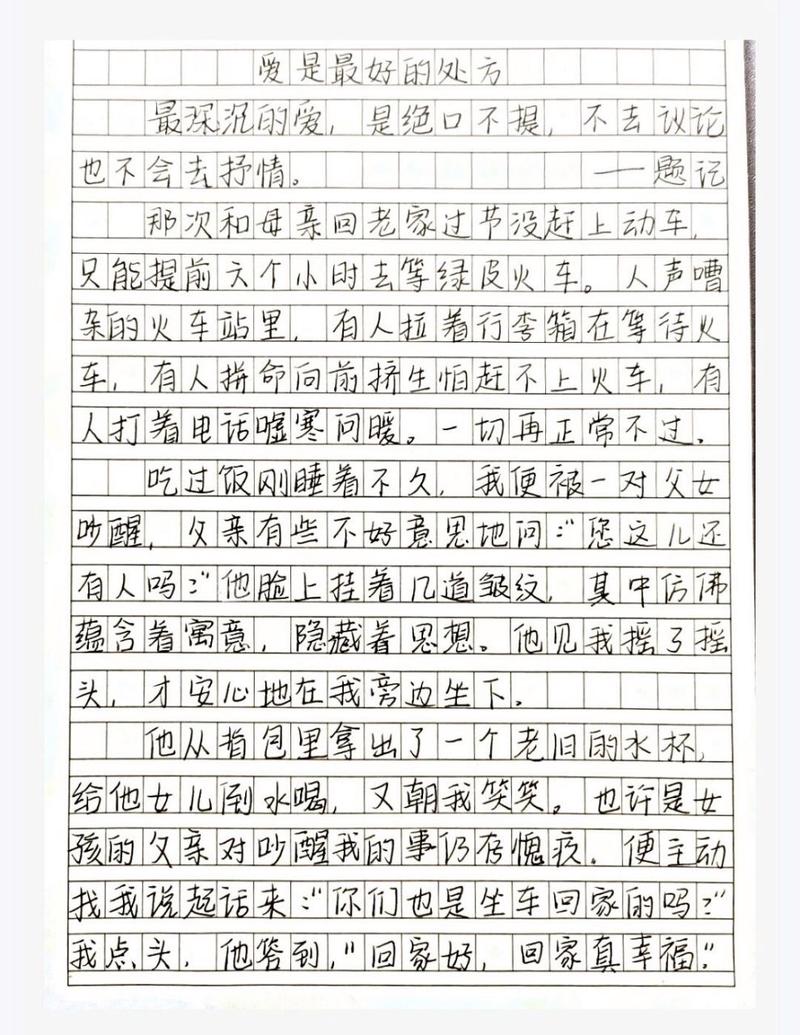 爱是最好的处方
最深沉的爱，是绝口不提，不去议论
也不会去抒情。 ——题记
那次和母亲回老家过节没赶上动车，
只能提前六个小时去等绿皮火车。人声嘈
杂的火车站里，有人拉着行李箱在等待火
车，有人拼命向前挤生怕赶不上火车，有
人打着电话嘘寒问暖。一切再正常不过。
吃过饭刚睡着不久，我便被一对父女
吵醒，父亲有些不好意思地问：“您这儿还
有人吗？”他脸上挂着几道皱纹，其中仿佛
蕴含着寓意，隐藏着思想。他见我摇了摇
头，才安心地在我旁边坐下。
他从背包里拿出了一个老旧的水杯，
给他女儿倒水喝，又朝我笑笑。也许是女
孩的父亲对吵醒我的事仍存愧疚。便主动
找我说起话来：“你们也是坐车回家的吗？”
我点头，他答到，“回家好，回家真幸福。”